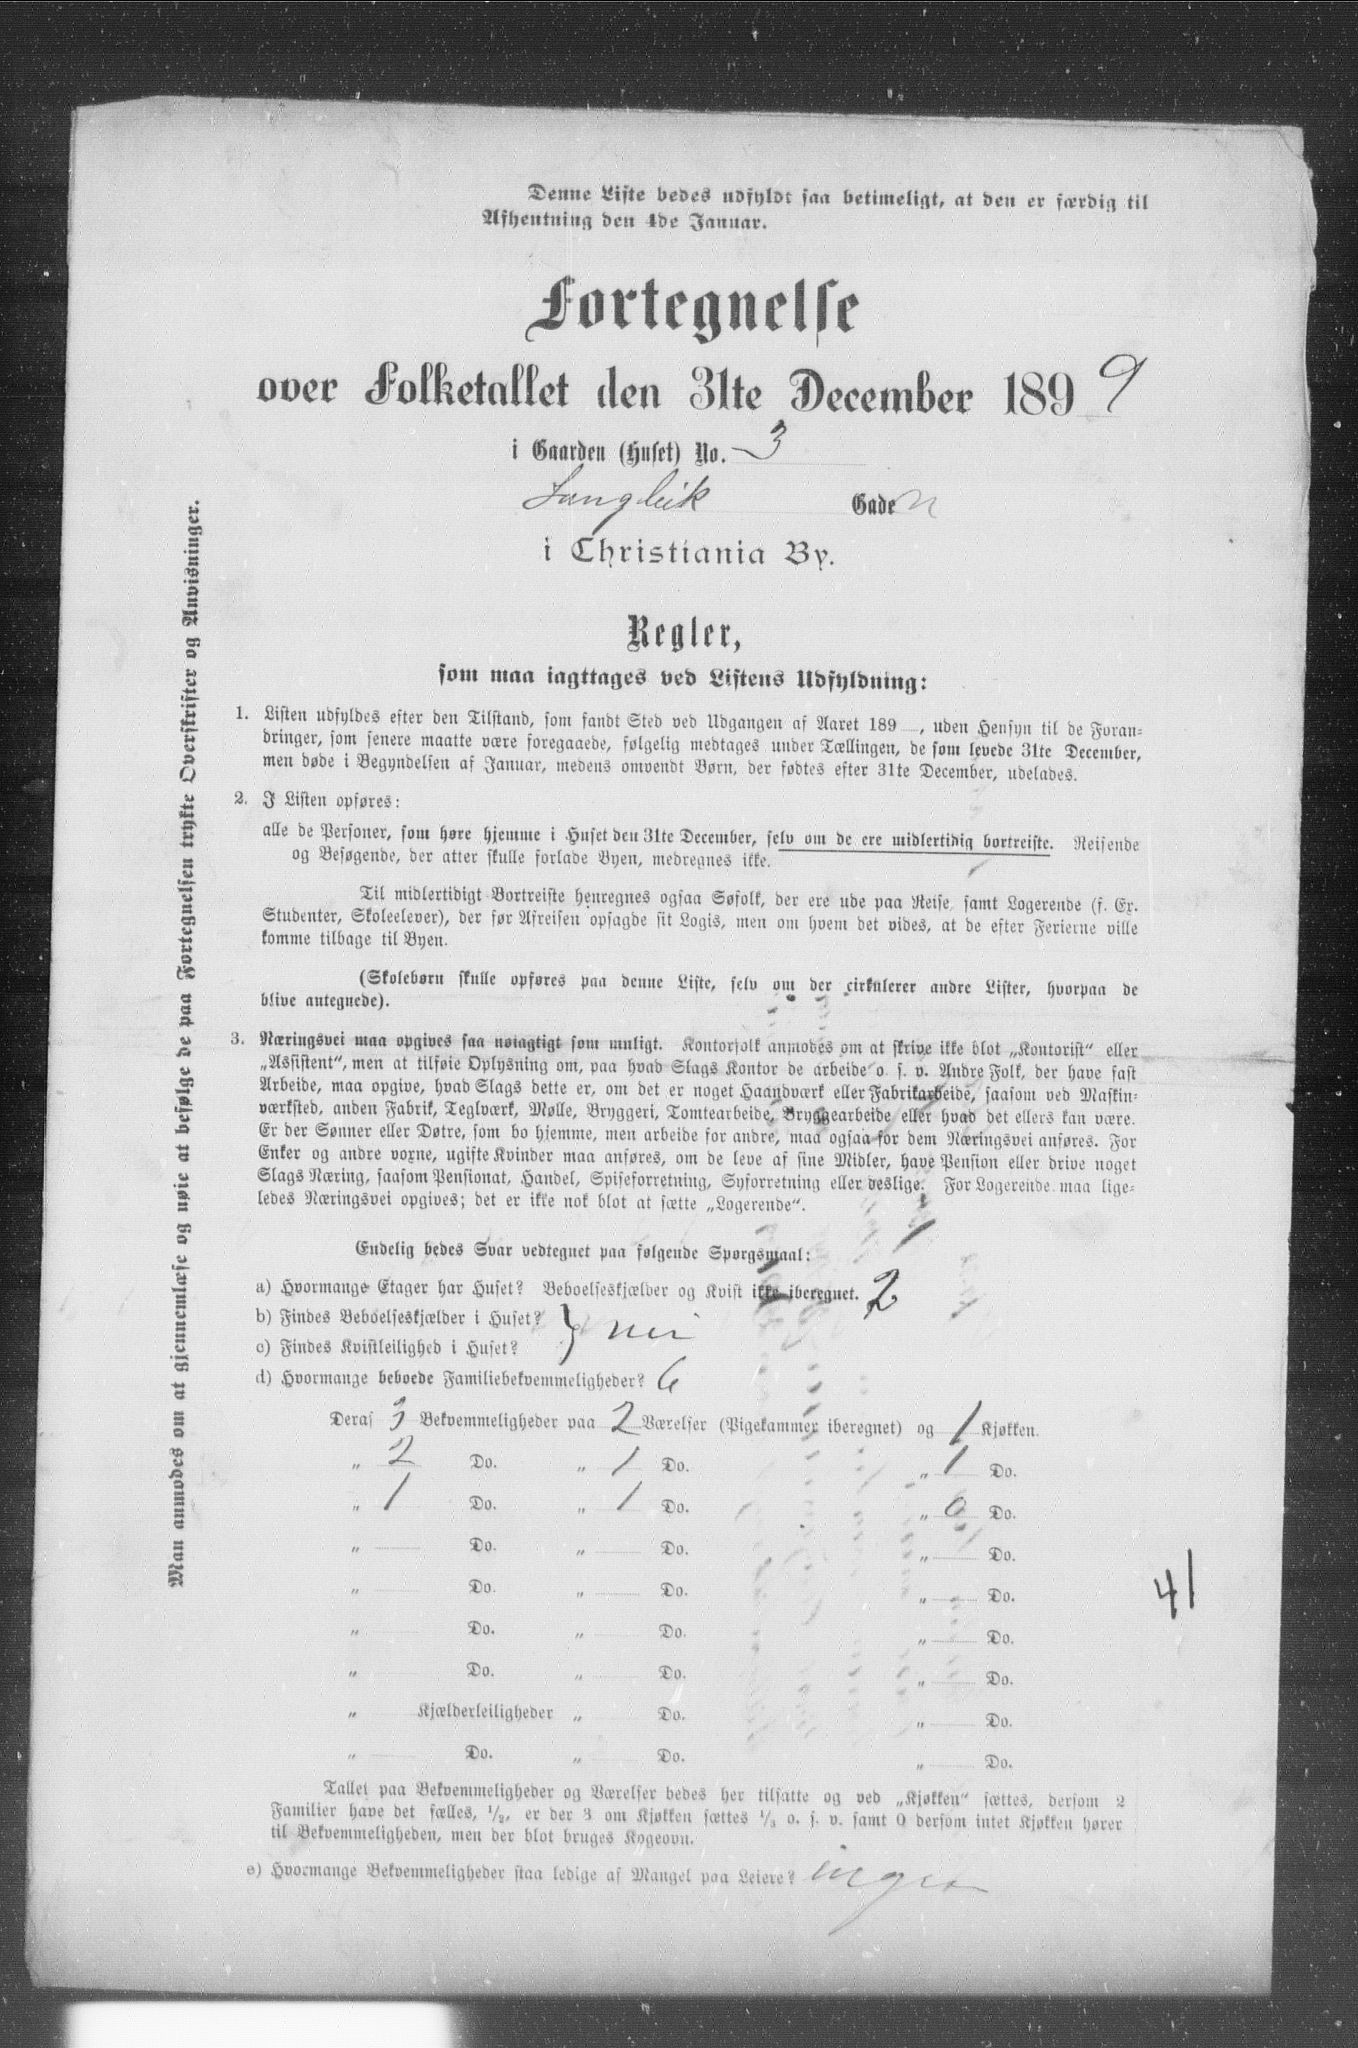 Denne Liste bedes udfyldt saa betimeligt, at den er færdig til
Afhentning den 4de Januar.
Fortegnelse
over Folketallet den 31te December 1899
i Gaarden (Huset) No. 3
Langleik Gaden
i Christiania By.
Regler,
som maa iagttages ved Listens Udfyldning:
1. Listen udfyldes efter den Tilstand, som fandt Sted ved Udgangen af Aaret 189 , uden Hensyn til de Foran-
dringer, som senere maatte være foregaaede, følgelig medtages under Tællingen, de som levede 31te December,
men døde i Begyndelsen af Januar, medens omvendt Børn, der fødtes efter 31te December, udelades.
2. I Listen opføres:
alle de Personer, som høre hjemme i Huset den 31te December, selv om de ere midlertidig bortreiste. Reisende
og Besøgende, der atter skulle forlade Byen, medregnes ikke.
Til midlertidigt Bortreiste henregnes ogsaa Søfolk, der ere ude paa Reise, samt Logerende (f. Ex.
Studenter, Skoleelever), der før Afreisen opsagde sit Logis, men om hvem det vides, at de efter Ferierne ville
komme tilbage til Byen.
(Skolebørn skulle opføres paa denne Liste, selv om der cirkulerer andre Lister, hvorpaa de
blive antegnede).
3. Næringsvei maa opgives saa nøiagtigt som muligt. Kontorfolk anmodes om at skrive ikke blot „Kontorist“ eller
„Assistent“, men at tilføie Oplysning om, paa hvad Slags Kontor de arbeide o. s. v. Andre Folk, der have fast
Arbeide, maa opgive, hvad Slags dette er, om det er noget Haandværk eller Fabrikarbeide, saasom ved Maskin-
værksted, anden Fabrik, Teglværk, Mølle, Bryggeri, Tomtearbeide, Bryggearbeide eller hvad det ellers kan være.
Er der Sønner eller Døtre, som bo hjemme, men arbeide for andre, maa ogsaa for dem Næringsvei anføres. For
Enker og andre voxne, ugifte Kvinder maa anføres, om de leve af sine Midler, have Pension eller drive noget
Slags Næring, saasom Pensionat, Handel, Spiseforretning, Syforretning eller deslige. For Logerende maa lige-
ledes Næringsvei opgives; det er ikke nok blot at sætte „Logerende“.
Endelig bedes Svar vedtegnet paa følgende Spørgsmaal:
a) Hvormange Etager har Huset? Beboelseskjælder og Kvist ikke iberegnet. 2
b) Findes Beboelseskjælder i Huset?
} nei
c) Findes Kvistleilighed i Huset?
d) Hvormange beboede Familiebekvemmeligheder? 6
Deraf 3 Bekvemmeligheder paa 2 Værelser (Pigekammer iberegnet) og 1 Kjøkken.
„ 2 Do. „ 1 Do. „ 1 Do.
„ 1 Do. „ 1 Do. „ 0 Do.
„ Do. „ Do. „ Do.
„ Do. „ Do. „ Do.
41
„ Do. „ Do. „ Do.
„ Do. „ Do. „ Do.
„ Kjælderleiligheder „ Do. „ Do.
„ Do. „ Do. „ Do.
Tallet paa Bekvemmeligheder og Værelser bedes her tilsatte og ved „Kjøkken“ sættes, dersom 2
Familier have det fælles, 1/2, er der 3 om Kjøkken sættes 1/3 o. s. v. samt 0 dersom intet Kjøkken hører
til Bekvemmeligheden, men der blot bruges Kogeovn.
e) Hvormange Bekvemmeligheder staa ledige af Mangel paa Leiere? ingen
Man anmodes om at gjennemlæse og nøie at befølge de paa Fortegnelsen trykte Overskrifter og Anvisninger.